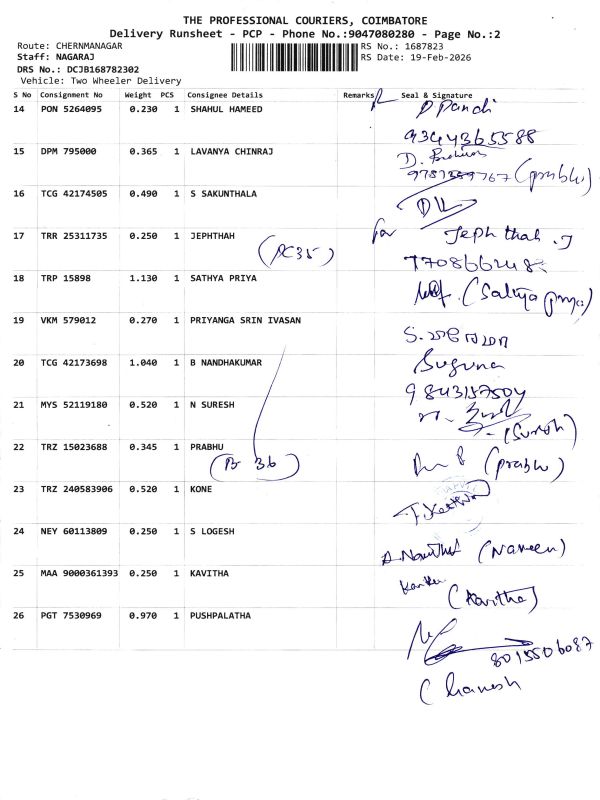 THE PROFESSIONAL COURIERS, COIMBATORE
Delivery Runsheet - PCP - Phone No.:9047080280 - Page No.:2
Route: CHERNMANAGAR RS No.: 1687823
Staff: NAGARAJ RS Date: 19-Feb-2026
DRS No.: DCJB168782302
Vehicle: Two Wheeler Delivery
S No Consignment No Weight PCS Consignee Details Remarks Seal & Signature
14 PON 5264095 0.230 1 SHAHUL HAMEED P Pandi
9344365588
15 DPM 795000 0.365 1 LAVANYA CHINRAJ D.
(prabhu)
16 TCG 42174505 0.490 1 S SAKUNTHALA
17 TRR 25311735 0.250 1 JEPHTHAH for Jephthah .J
(PC35)
18 TRP 15898 1.130 1 SATHYA PRIYA (Sathya priya)
19 VKM 579012 0.270 1 PRIYANGA SRIN IVASAN
20 TCG 42173698 1.040 1 B NANDHAKUMAR Suguna
9843157504
21 MYS 52119180 0.520 1 N SURESH
(Suresh)
22 TRZ 15023688 0.345 1 PRABHU (prabhu)
(B 36)
23 TRZ 240583906 0.520 1 KONE
24 NEY 60113809 0.250 1 S LOGESH (Naveen)
25 MAA 9000361393 0.250 1 KAVITHA
(Kavitha)
26 PGT 7530969 0.970 1 PUSHPALATHA
8015506087